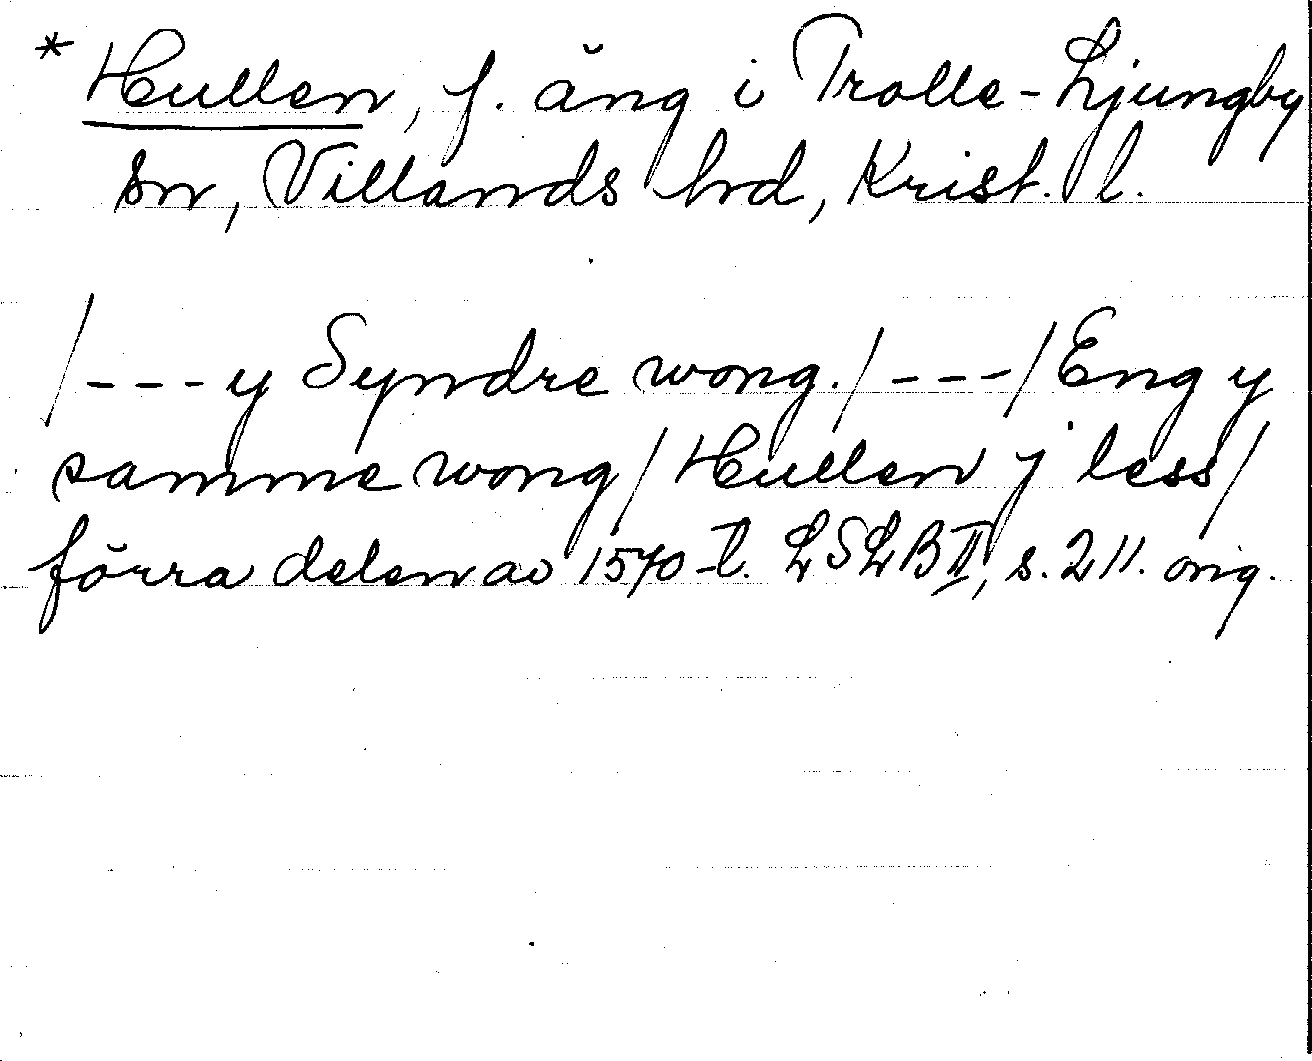 * Hullen, f. äng i Trolle-Ljungby
sn, Villands hrd, Krist. l.
/---y Syndre wong./---/Eng y
samme wong/Hullen j less/
förra delen av 1570-t. LSLB II, s. 211. orig.